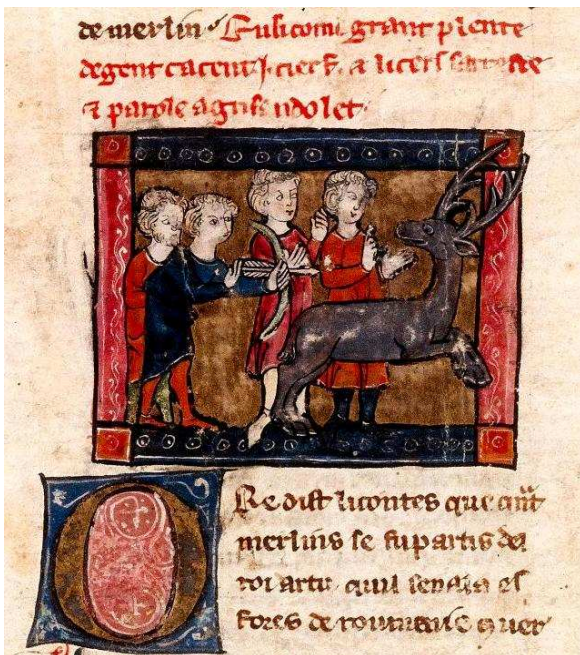 de merlin. Ensi comi. grant plente
de gent cacent .i. cierf. & li cers sareste
& parole a
Ore dist li contes que qnt
merlins se fu partis del
roi artu quil sen ala es
fores de roumenie & uer